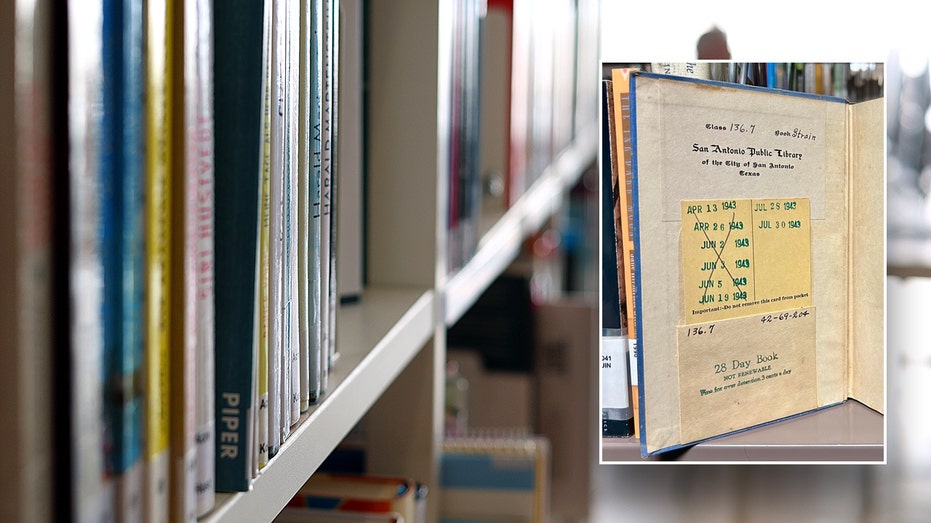 PIPER
Class 136.7 Book Strain
San Antonio Public Library
of the City of San Antonio
Texas
APR 13 1943 JUL 28 1943
APR 26 1943 JUL 30 1943
JUN 2 1943
JUN 3 1943
JUN 5 1943
JUN 19 1943
Important:—Do not remove this card from pocket
136.7 42-69-204
28 Day Book
NOT RENEWABLE
Fine for over detention 3 cents a day
041
JIN